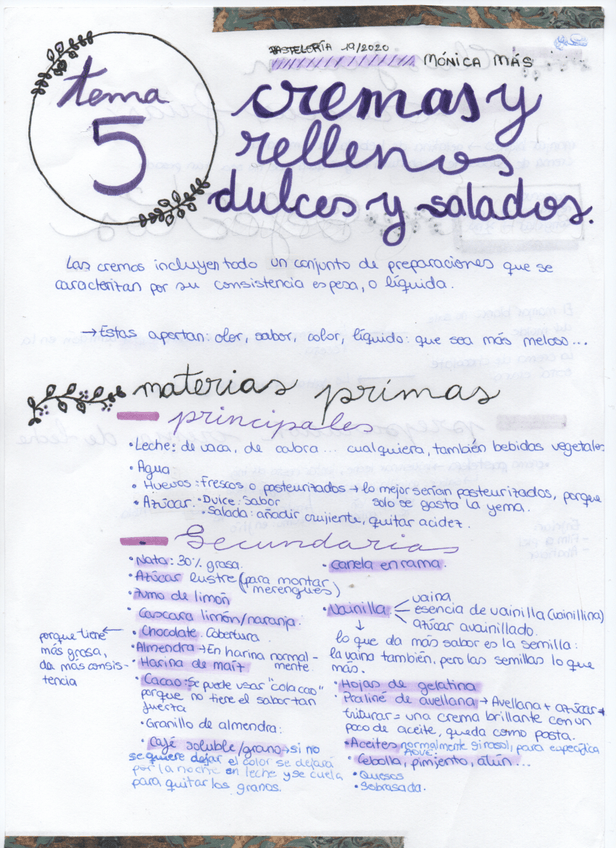 PASTELERÍA 19/2020
MÓNICA MÁS
tema
5
cremas y
rellenos
dulces y salados.
Las cremas incluyen todo un conjunto de preparaciones que se
caracteritan por su consistencia espesa, o líquida.
→ Estas aportan: olor, sabor, color, líquido: que sea más meloso...
materias primas
principales
• Leche: de vaca, de cabra... cualquiera, también bebidas vegetales
• Agua
• Huevos: Frescos o pasteurizados → lo mejor serían pasteurizados, porque
solo se gasta la yema.
• Azúcar: • Dulce: sabor
• Salada: añadir crujiente, quitar acidez.
Secundarias
• Nata: 30% grasa.
• Azúcar lustre (para montar
merengues)
• Zumo de limón
• Cascara limón/naranja.
• Chocolate: Cobertura.
porque tiene
más grasa,
da más consis-
tencia
• Almendra → En harina normal-
mente.
• Harina de maíz
• Cacao: Se puede usar "cola cao"
porque no tiene el sabor tan
fuerte
• Granillo de almendra:
• Café soluble/grano → si no
se quiere dejar el color se dejará
por la noche en leche y se cuela
para quitar los granos.
• Canela en rama.
• Vainilla
vaina
esencia de vainilla (vainillina)
azúcar avainillado.
lo que da más sabor es la semilla:
la vaina también, pero las semillas lo que
más.
• Hojas de gelatina
• Praliné de avellana → Avellana + azúcar +
triturar = una crema brillante con un
poco de aceite, queda como pasta.
• Aceites normalmente girasol, para específica
• Cebolla, pimiento, atún...
• Quesos
• Sobrasada.